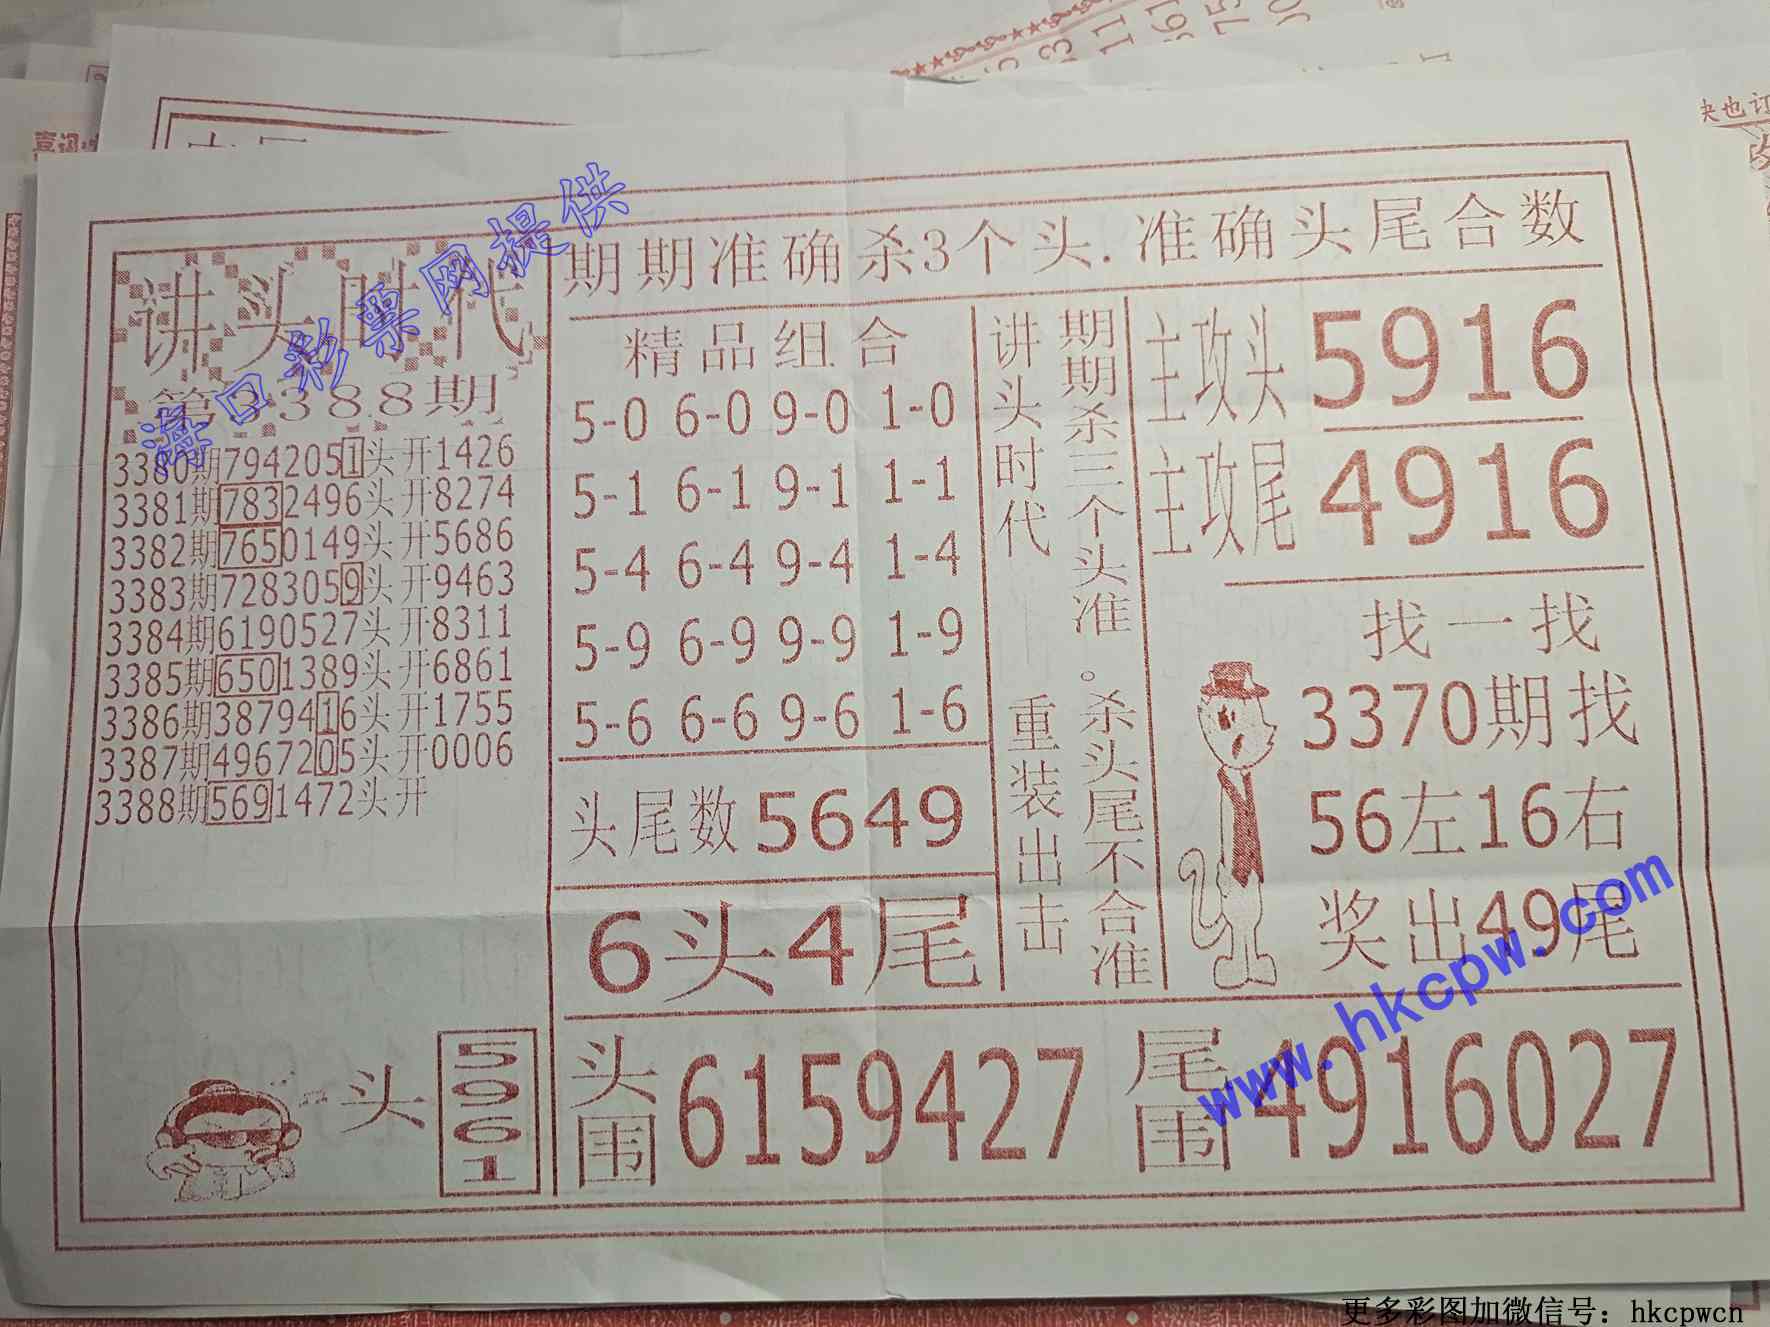 讲头时代
第3388期
3380期7942051头开1426
3381期7832496头开8274
3382期7650149头开5686
3383期7283059头开9463
3384期6190527头开8311
3385期6501389头开6861
3386期3879416头开1755
3387期4967205头开0006
3388期5691472头开
一头
5961
期期准确杀3个头.准确头尾合数
精品组合
5-0 6-0 9-0 1-0
5-1 6-1 9-1 1-1
5-4 6-4 9-4 1-4
5-9 6-9 9-9 1-9
5-6 6-6 9-6 1-6
头尾数5649
6头4尾
讲头时代——重装出击
期期杀三个头准。杀头尾不合准
主攻头5916
主攻尾4916
找一找
3370期找
56左16右
奖出49尾
头围6159427
尾围4916027
海口彩票网提供
www.hkcpw.com
更多彩图加微信号: hkcpwcn
喜讯
快也订